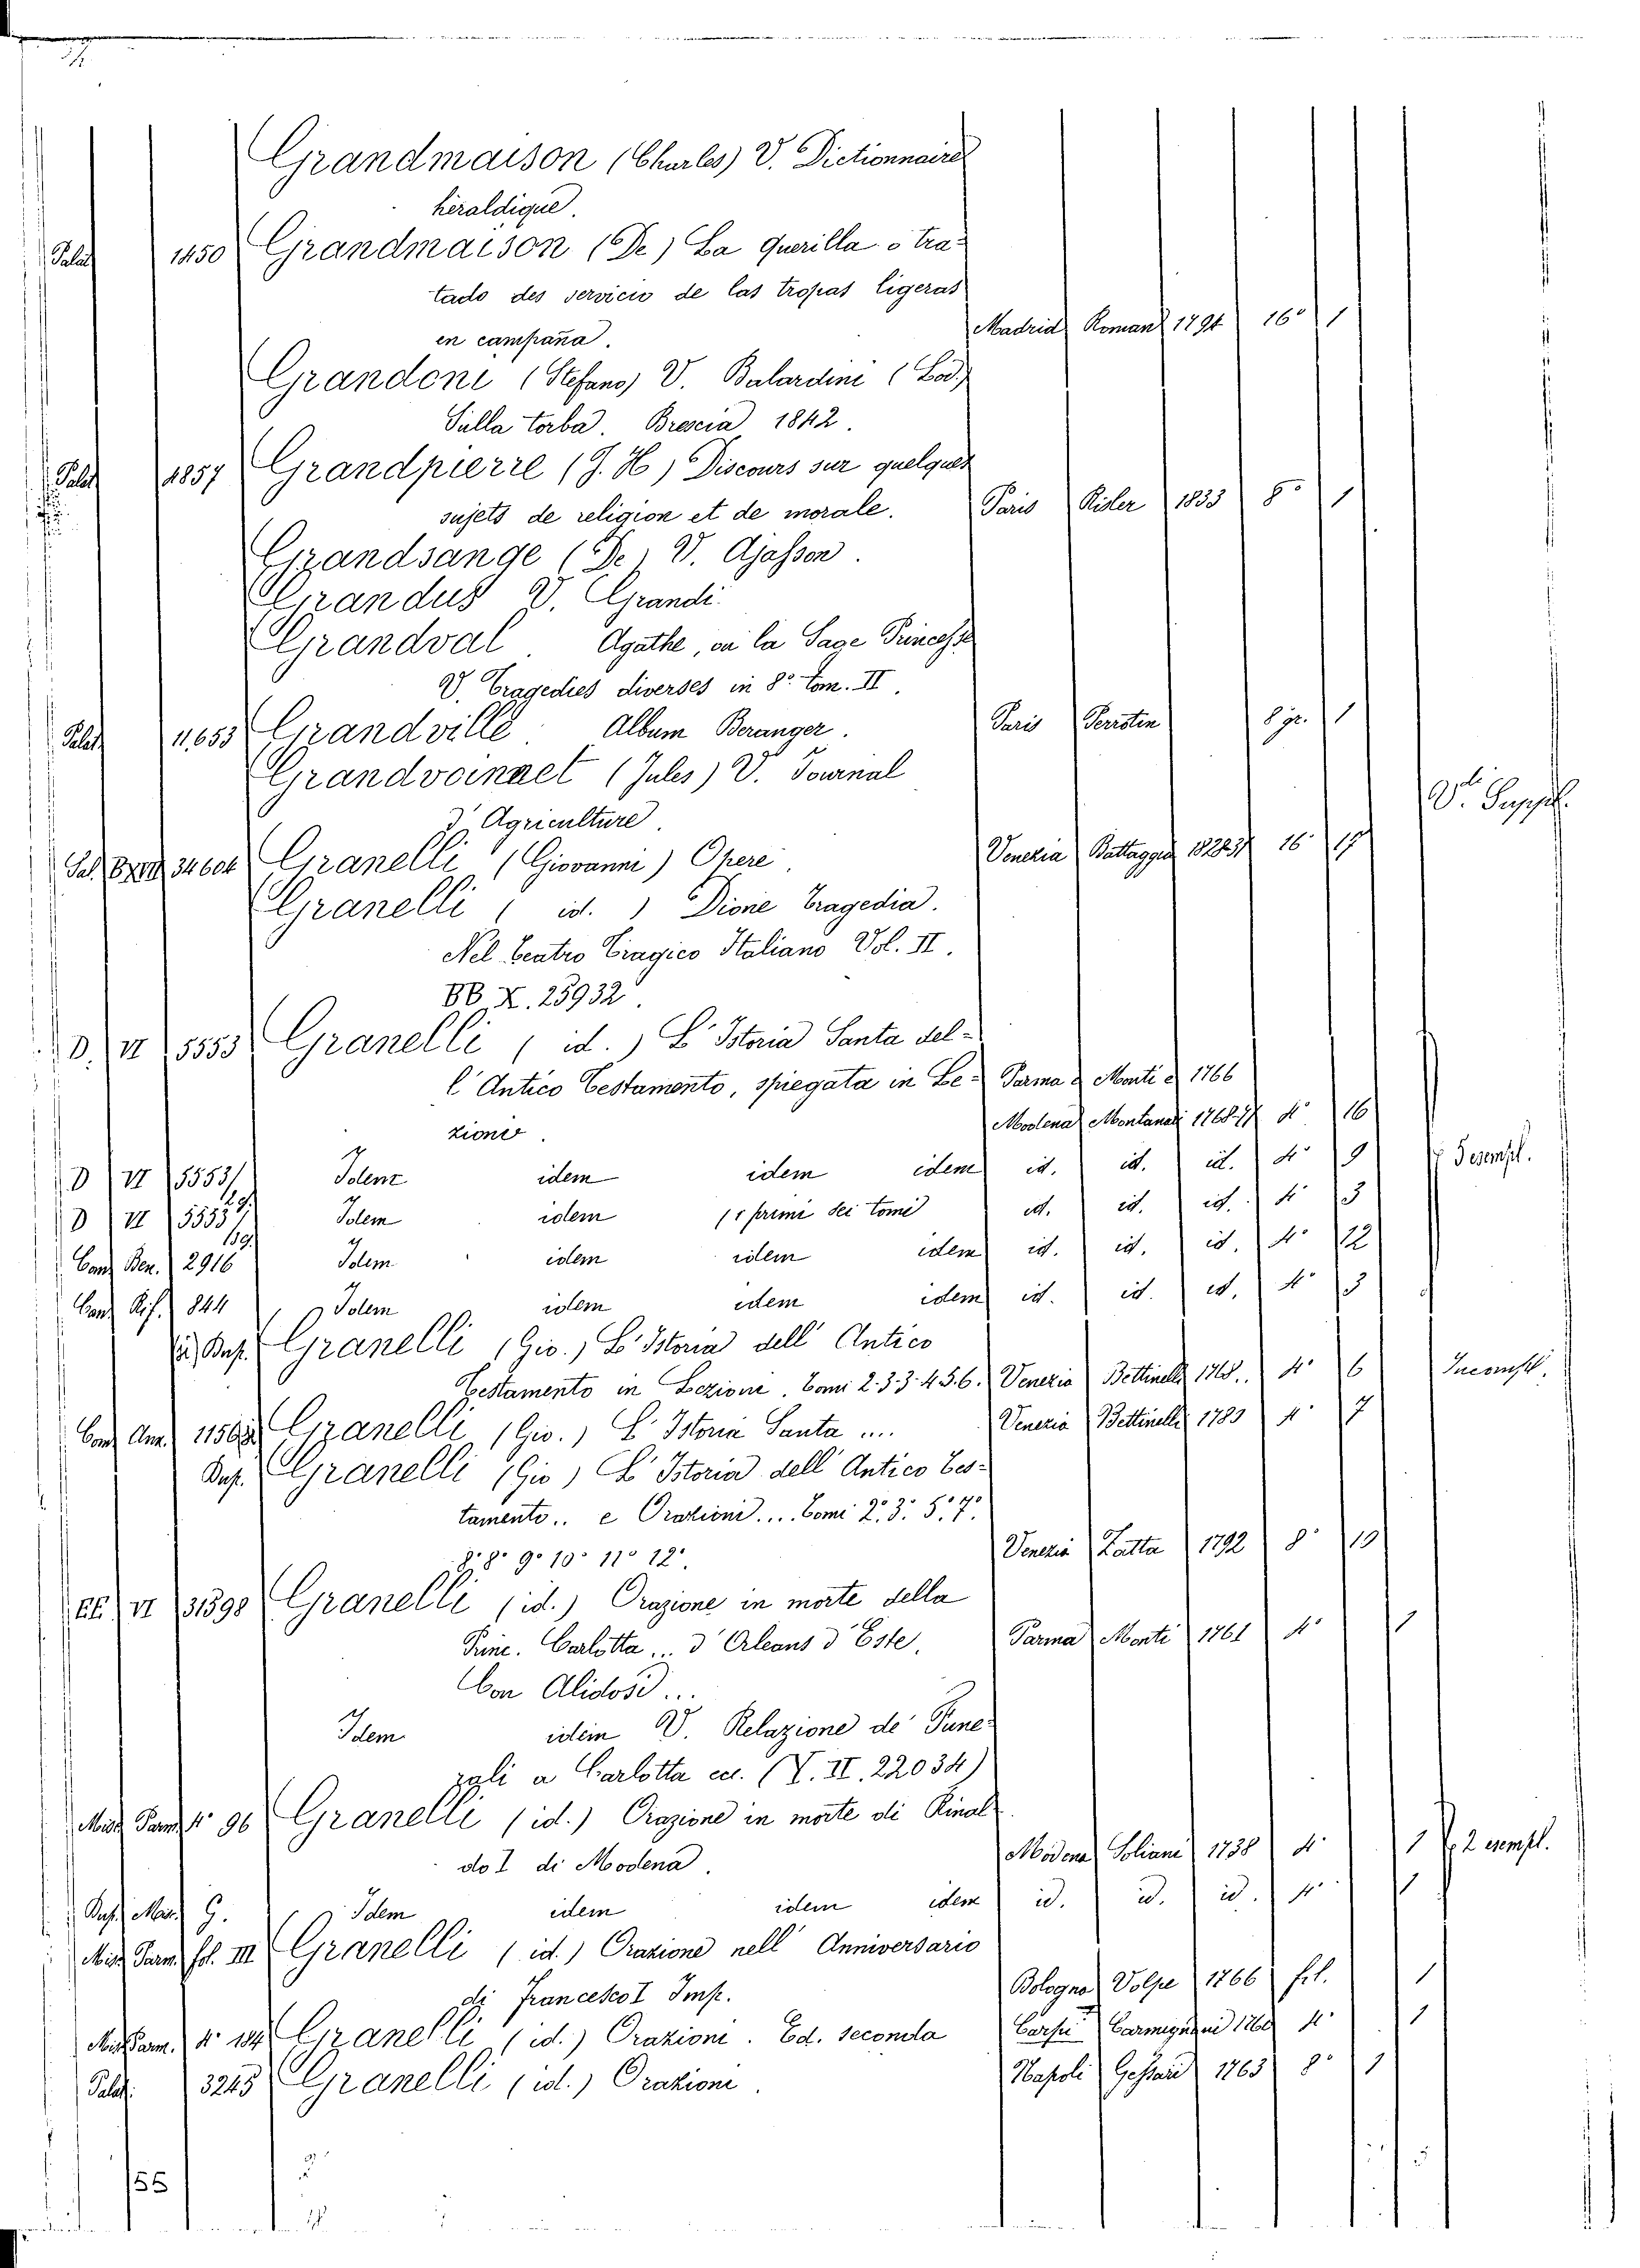 Grandmaison (Charles) V. Dictionnaire
héraldique.
Palat 1450 Grandmaison (De) La Guerilla o tra-
tado des servicio de las tropas ligeras
en campaña. Madrid Roman 1794 16° 1
Grandoni (Stefano) V. Balardini (Lod.)
Sulla torba. Brescia 1842.
Palat 1857 Grandpierre (J. H.) Discours sur quelques
sujets de religion et de morale. Paris Risler 1833 8° 1
Grandsange (De) V. Ajasson.
Grandus V. Grandi.
Grandval. Agathe, ou la Sage Princesse
V. Tragedies diverses in 8° Tom. II.
Palat 11,653 Grandville. Album Beranger. Paris Perrotin 8 gr. 1
Grandvoinnet (Jules) V. Journal
d'Agriculture.
Sal. 34604 Granelli (Giovanni) Opere. Venezia Battaggia 16° 19 V. Suppl.
Granelli (id.) Dione Tragedia.
Nel Teatro Tragico Italiano Vol. II.
BB. X. 25932.
D. VI 5553 Granelli (id.) L'Istoria Santa del-
l'Antico Testamento, spiegata in Le- Parma e Monti e 1766
zioni. Modena Montanari 1768-71 4° 16
D VI 5553/ Idem idem idem idem id. id. id. 4° 9 Desempl.
D VI 5553/ Idem idem (i primi sei tomi id. id. id. 4° 3
Conv Ben. 2916 Idem idem idem idem id. id. id. 4° 12
Conv Rif. 844 Idem idem idem idem id. id. id. 4° 3
Dup. Granelli (Gio.) L'Istoria dell'Antico
Testamento in Lezioni. Tomi 2. 3. 3. 4. 5. 6. Venezia Bettinelli 1768.. 4° 6 Incompl.
Conv Ann. Granelli (Gio.) L'Istoria Santa .... Venezia Bettinelli 1783 4° 7
Dup. Granelli (Gio) L'Istoria dell'Antico Tes-
tamento.. e Orazioni.... Tomi 2° 3° 5° 7°
8° 8° 9° 10° 11° 12°. Venezia Zatta 1792 8° 10
EE VI 31598 Granelli (id.) Orazione in morte della
Princ. Carlotta... d'Orleans d'Este. Parma Monti 1761 4° 1
Con Alidosi...
Idem idem V. Relazione de' Fune-
rali a Carlotta ecc. (V. II. 22034)
Misc Parm 4° 96 Granelli (id.) Orazione in morte di Rinal-
do I di Modena. Modena Soliani 1738 4° 1 2 esempl.
Dup. Mar. G. Idem idem idem idem id. id. id. 4° 1
Misc Parm. fol. III Granelli (id.) Orazione nell'Anniversario
di Francesco I Imp. Bologna Volpe 1766 fol. 1
Misc Parm. 4° 184 Granelli (id.) Orazioni. Ed. seconda Carpi Carmignani 1760 4° 1
Palat. 3245 Granelli (id.) Orazioni. Napoli Gessari 1763 8° 1
155